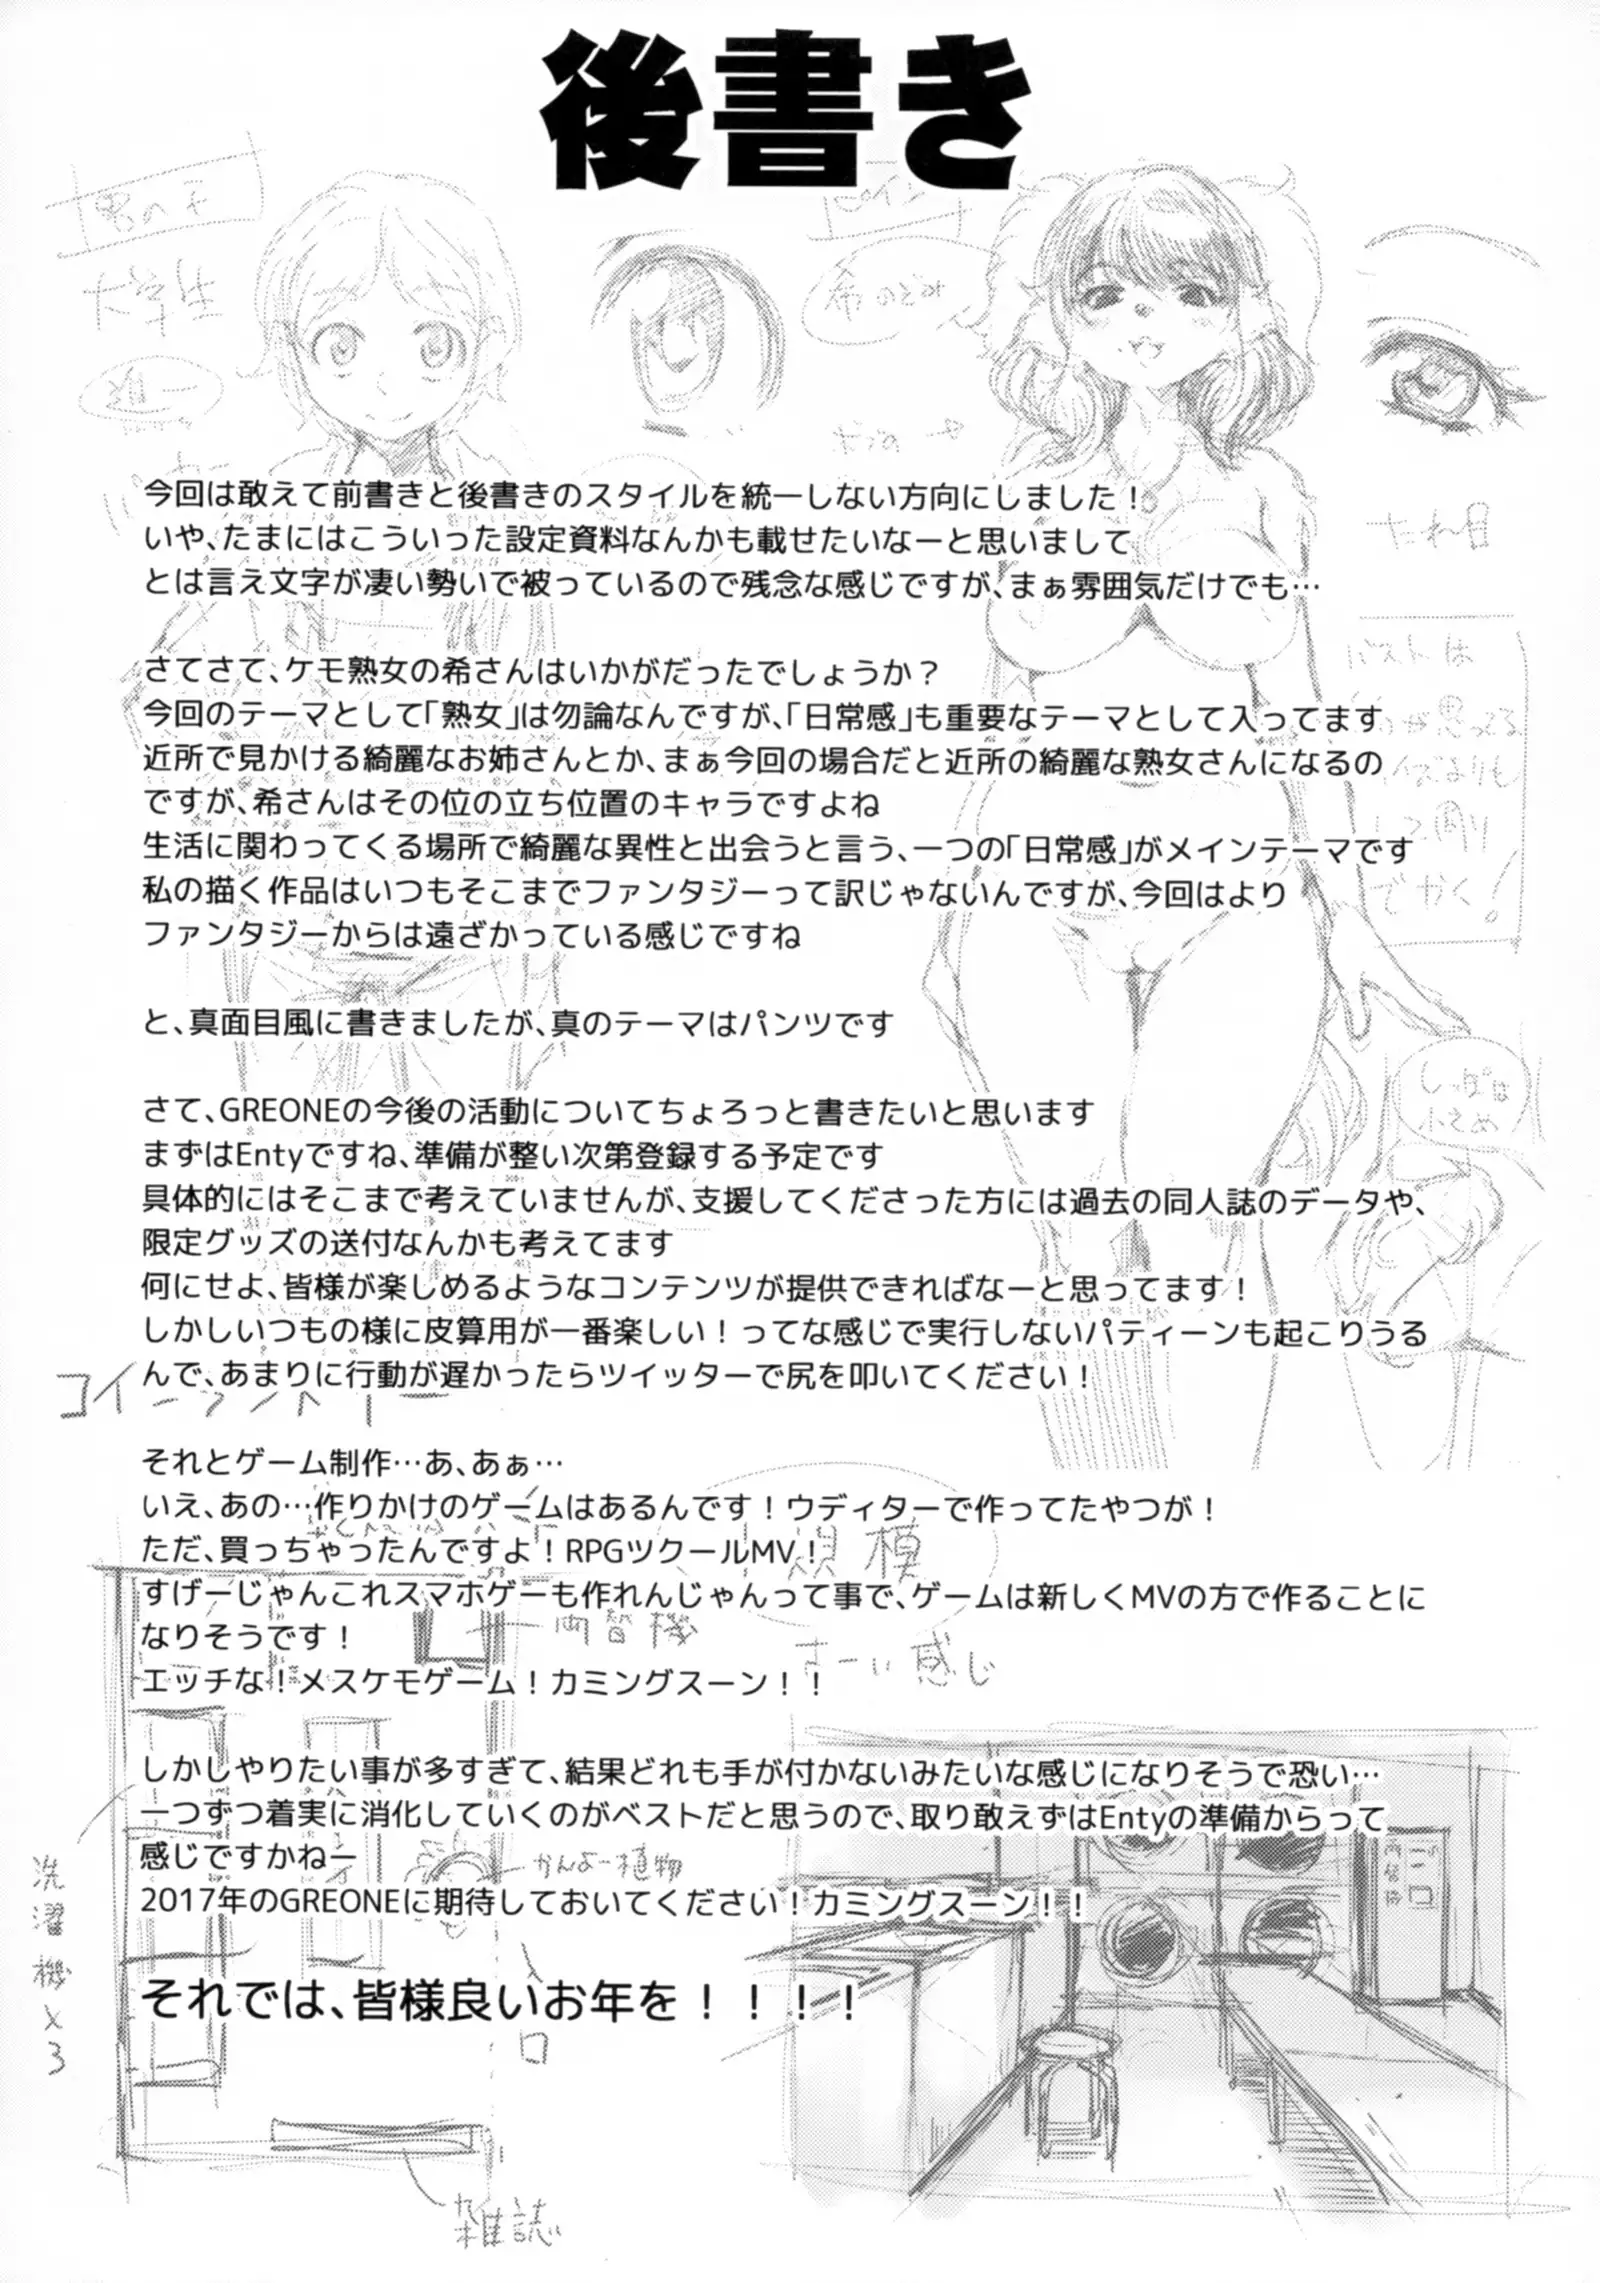 後書き
男の子
大学生
希のぞみ
たれ目
今回は敢えて前書きと後書きのスタイルを統一しない方向にしました！
いや、たまにはこういった設定資料なんかも載せたいなーと思いまして
とは言え文字が凄い勢いで被っているので残念な感じですが、まぁ雰囲気だけでも…
さてさて、ケモ熟女の希さんはいかがだったでしょうか？
今回のテーマとして「熟女」は勿論なんですが、「日常感」も重要なテーマとして入ってます
近所で見かける綺麗なお姉さんとか、まぁ今回の場合だと近所の綺麗な熟女さんになるの
ですが、希さんはその位の立ち位置のキャラですよね
生活に関わってくる場所で綺麗な異性と出会うと言う、一つの「日常感」がメインテーマです
私の描く作品はいつもそこまでファンタジーって訳じゃないんですが、今回はより
ファンタジーからは遠ざかっている感じですね
バストは
が思ってる
でかく！
と、真面目風に書きましたが、真のテーマはパンツです
しっぽは
小さめ
さて、GREONEの今後の活動についてちょろっと書きたいと思います
まずはEntyですね、準備が整い次第登録する予定です
具体的にはそこまで考えていませんが、支援してくださった方には過去の同人誌のデータや、
限定グッズの送付なんかも考えてます
何にせよ、皆様が楽しめるようなコンテンツが提供できればなーと思ってます！
しかしいつもの様に皮算用が一番楽しい！ってな感じで実行しないパティーンも起こりうる
んで、あまりに行動が遅かったらツイッターで尻を叩いてください！
コインランドリー
それとゲーム制作…あ、あぁ…
いえ、あの…作りかけのゲームはあるんです！ウディターで作ってたやつが！
ただ、買っちゃったんですよ！RPGツクールMV！
すげーじゃんこれスマホゲーも作れんじゃんって事で、ゲームは新しくMVの方で作ることに
なりそうです！
エッチな！メスケモゲーム！カミングスーン！！
両替機
小規模
さーい感じ
しかしやりたい事が多すぎて、結果どれも手が付かないみたいな感じになりそうで恐い…
一つずつ着実に消化していくのがベストだと思うので、取り敢えずはEntyの準備からって
感じですかねー
2017年のGREONEに期待しておいてください！カミングスーン！！
かんよー植物
洗濯機×3
入口
それでは、皆様良いお年を！！！！
雑誌